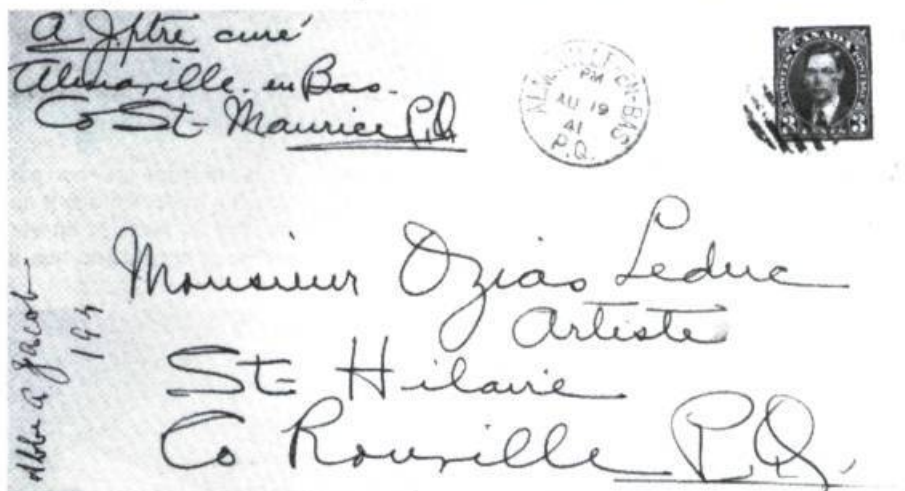 A J. ptre curé
Almaville. en Bas.
Co St- Maurice P.Q.
ALMAVILLE EN-BAS
PM
AU 19
41
P.Q.
CANADA
3 3
Monsieur Ozias Leduc
Artiste
St- Hilaire
Co Rouville P.Q.
Abbé A Jacob